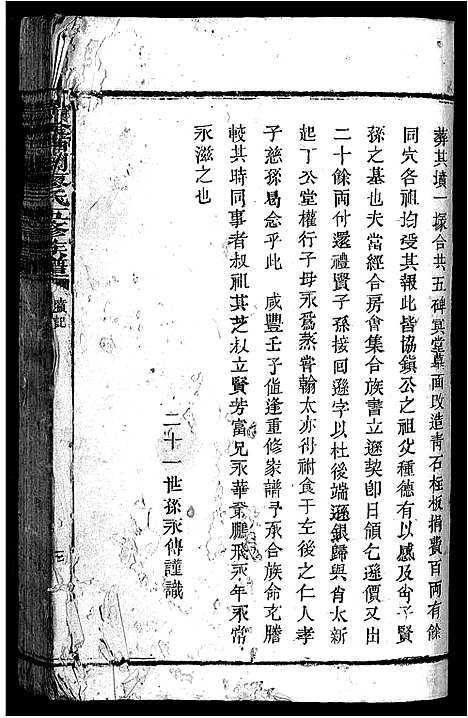 葬其墳一塚合共五碑其堂幕面改造青石桎板捐費百両有餘
同穴各祖均受其報此皆協鎮公之祖父種德有以感及肖子賢
孫之基也夫當經合房會集合族書立遜契卽日領乞遜價又出
二十餘両付還禮賢子孫接囘遜字以杜後端遜銀歸與肖太新
起丁公堂權行子母永爲蒸嘗翰太亦得祔食于左後之仁人孝
子慈孫曷念乎此　咸豐壬子値逢重修家譜予承合族命乞謄
較其時同事者叔祖其芝叔立賢芳富兄永華希鵬飛永年永常
永滋之也
二十一世孫永傳謹識
氏五修族譜
墳記